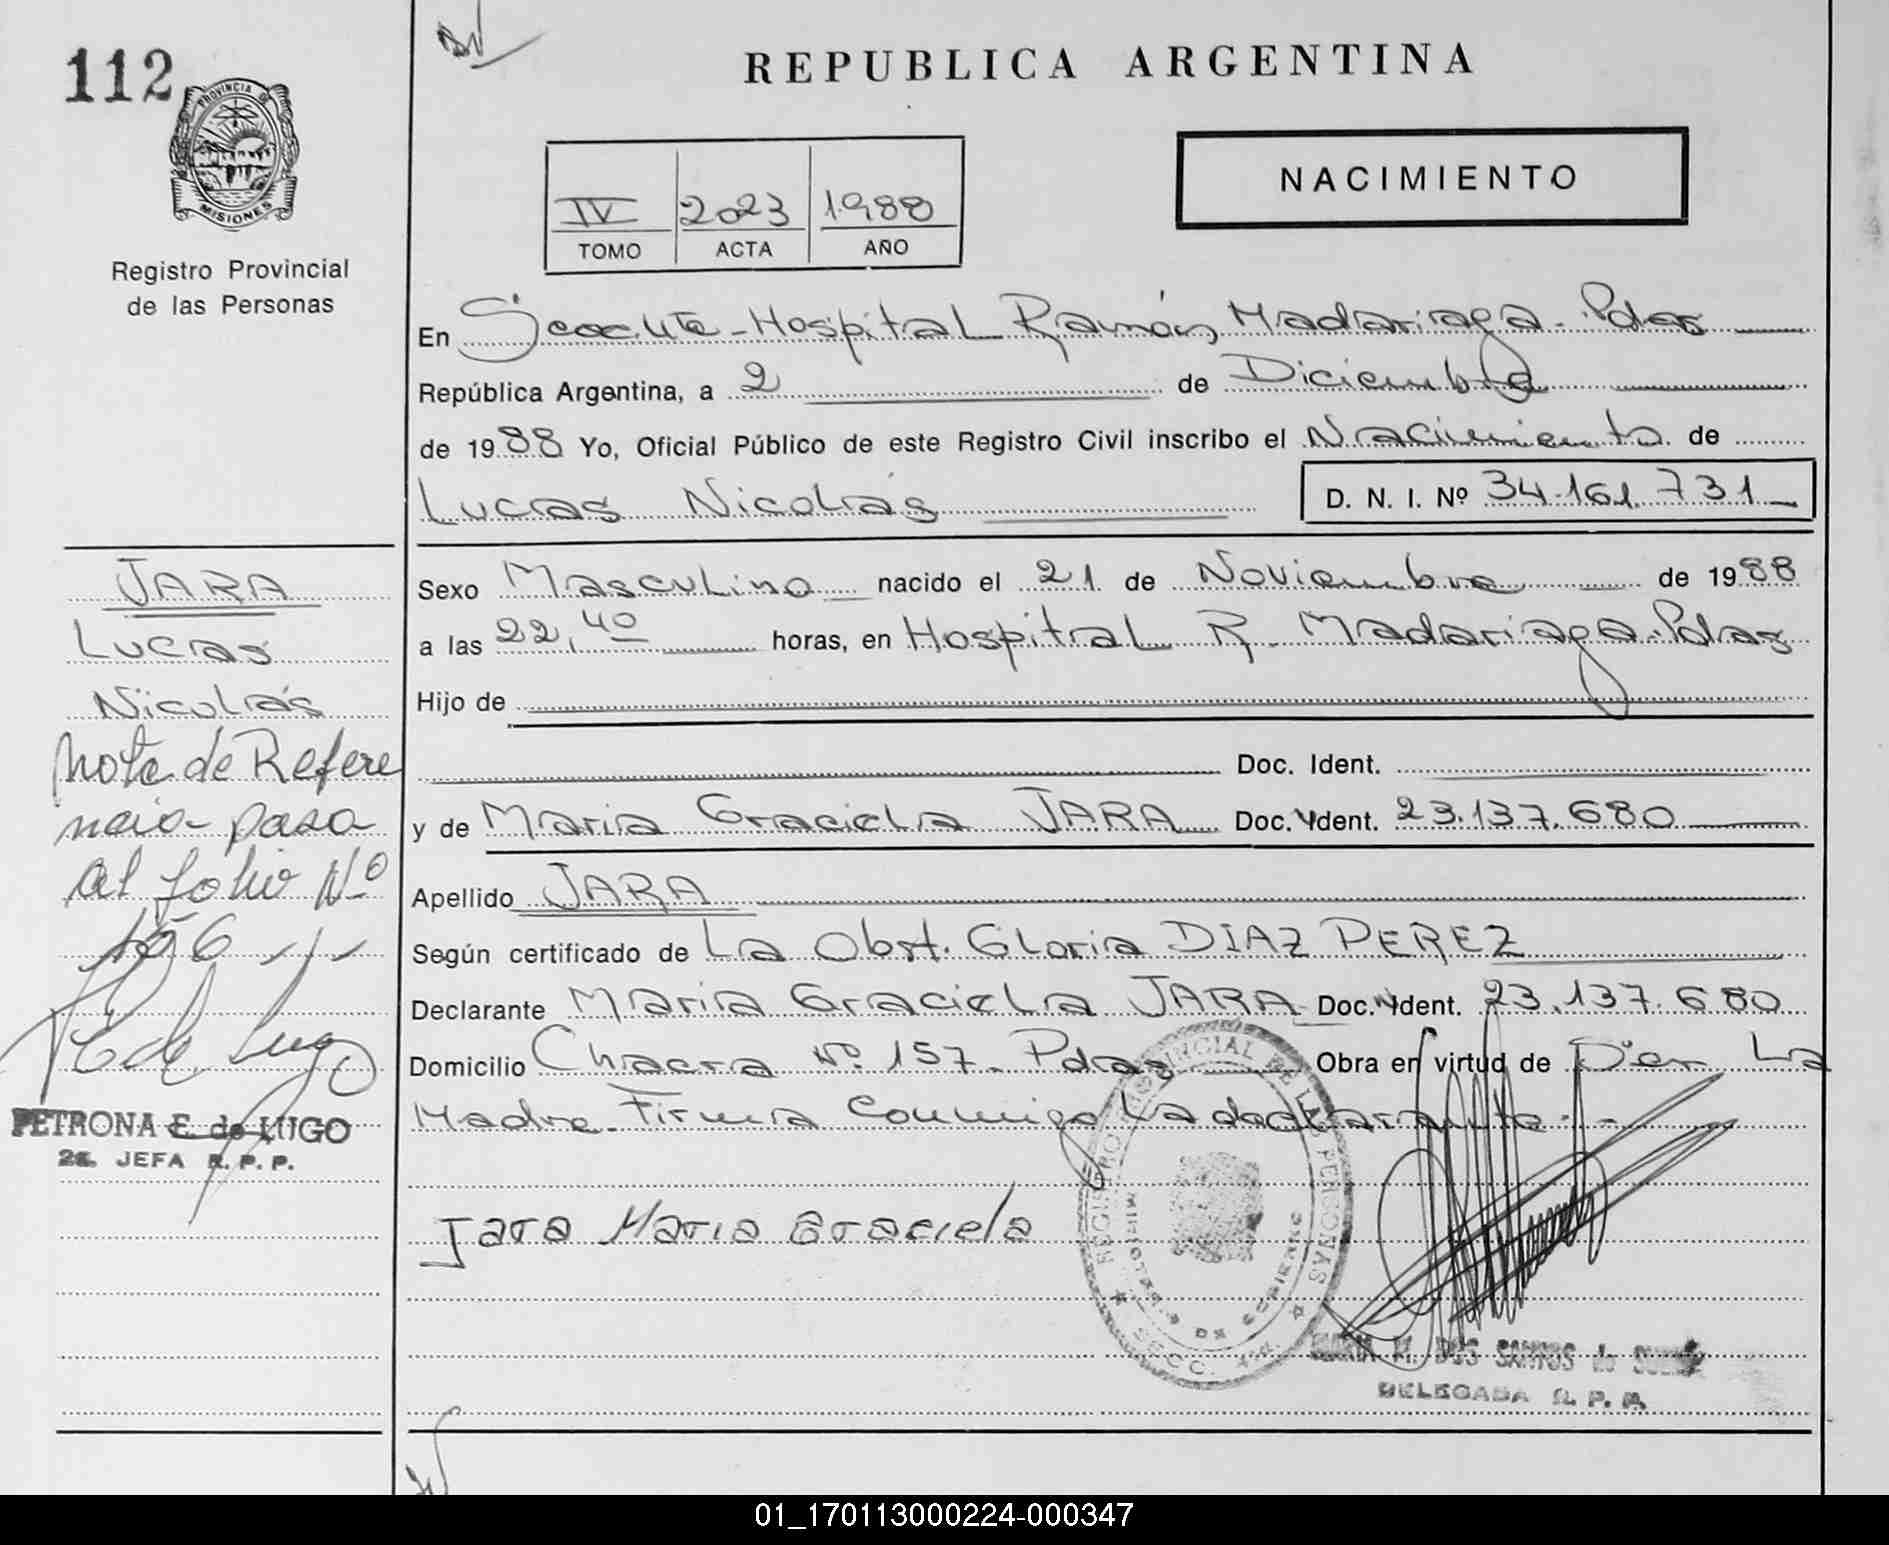 112
PROVINCIA DE
MISIONES
Registro Provincial
de las Personas
REPUBLICA ARGENTINA
NACIMIENTO
IV 2023 1988
TOMO ACTA AÑO
En Hospital Ramón Madariaga - Pdas
República Argentina, a 2 de Diciembre
de 1988 Yo, Oficial Público de este Registro Civil inscribo el Nacimiento de
Lucas Nicolás D. N. I. Nº 34.161.731
Sexo Masculino nacido el 21 de Noviembre de 1988
a las 22,40 horas, en Hospital R. Madariaga - Pdas
Hijo de
Doc. Ident.
y de Maria Graciela JARA Doc. Ident. 23.137.680
Apellido JARA
Según certificado de La Obst. Gloria DIAZ PEREZ
Declarante Maria Graciela JARA Doc. Ident. 23.137.680
Domicilio Chacra Nº 157 - Pdas Obra en virtud de Der La
Madre - Firma Conmigo La declarante.-
Jara Maria Graciela
JARA
Lucas
Nicolás
Nota de Refere
ncia pasa
al folio Nº
156
PETRONA E. de LUGO
2a. JEFA R. P. P.
REGISTRO PROVINCIAL DE LAS PERSONAS
MINISTERIO DE GOBIERNO
SECC.
DOS SANTOS de
DELEGADA R. P. P.
01_170113000224-000347